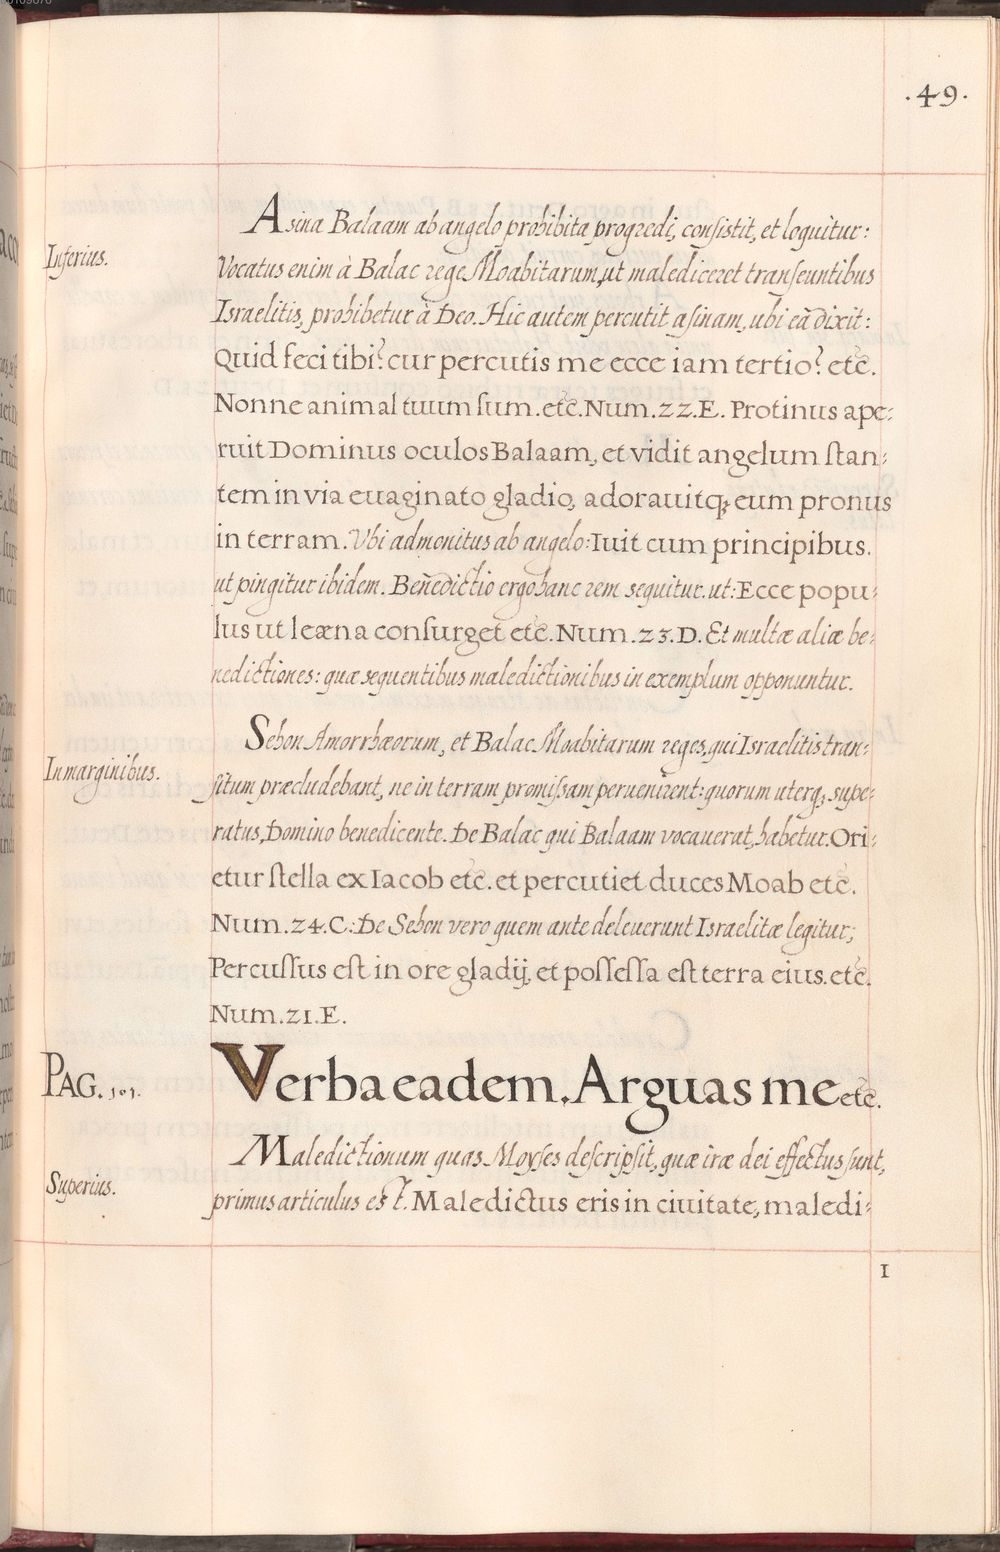 .49.
Asina Balaam ab angelo prohibita progredi, consistit, et loquitur:
Inferius.
Vocatus enim à Balac rege Moabitarum, ut malediceret transeuntibus
Israelitis, prohibetur à Deo. Hic autem percutit asinam, ubi eã dixit:
Quid feci tibi? cur percutis me ecce iam tertio? etc̃.
Nonne animal tuum sum. etc̃. Num. 22. E. Protinus ape:
ruit Dominus oculos Balaam, et vidit angelum stan:
tem in via euaginato gladio, adorauitq; eum pronus
in terram. Vbi admonitus ab angelo: Iuit cum principibus.
ut pingitur ibidem. Beñedictio ergo hanc rem sequitur. ut: Ecce popu:
lus ut leæna consurget etc̃. Num. 23. D. Et multæ aliæ be:
nedictiones: quæ sequentibus maledictionibus in exemplum opponuntur.
Sehon Amorrhæorum, et Balac Moabitarum reges, qui Israelitis tran:
In marginibus.
situm præcludebant, ne in terram promissam peruenirent: quorum uterq; supe:
ratus, Domino benedicente. De Balac qui Balaam vocauerat, habetur. Ori:
etur stella ex Iacob etc̃. et percutiet duces Moab etc̃.
Num. 24. C: De Sehon vero quem ante deleuerunt Israelitæ legitur;
Percussus est in ore gladij, et possessa est terra eius. etc̃.
Num. 21. E.
PAG. 101.
Verba eadem. Arguas me etc̃.
Maledictionum quas Moyses descripsit, quæ iræ dei effectus sunt,
Superius.
primus articulus est. Maledictus eris in ciuitate, maledi:
I